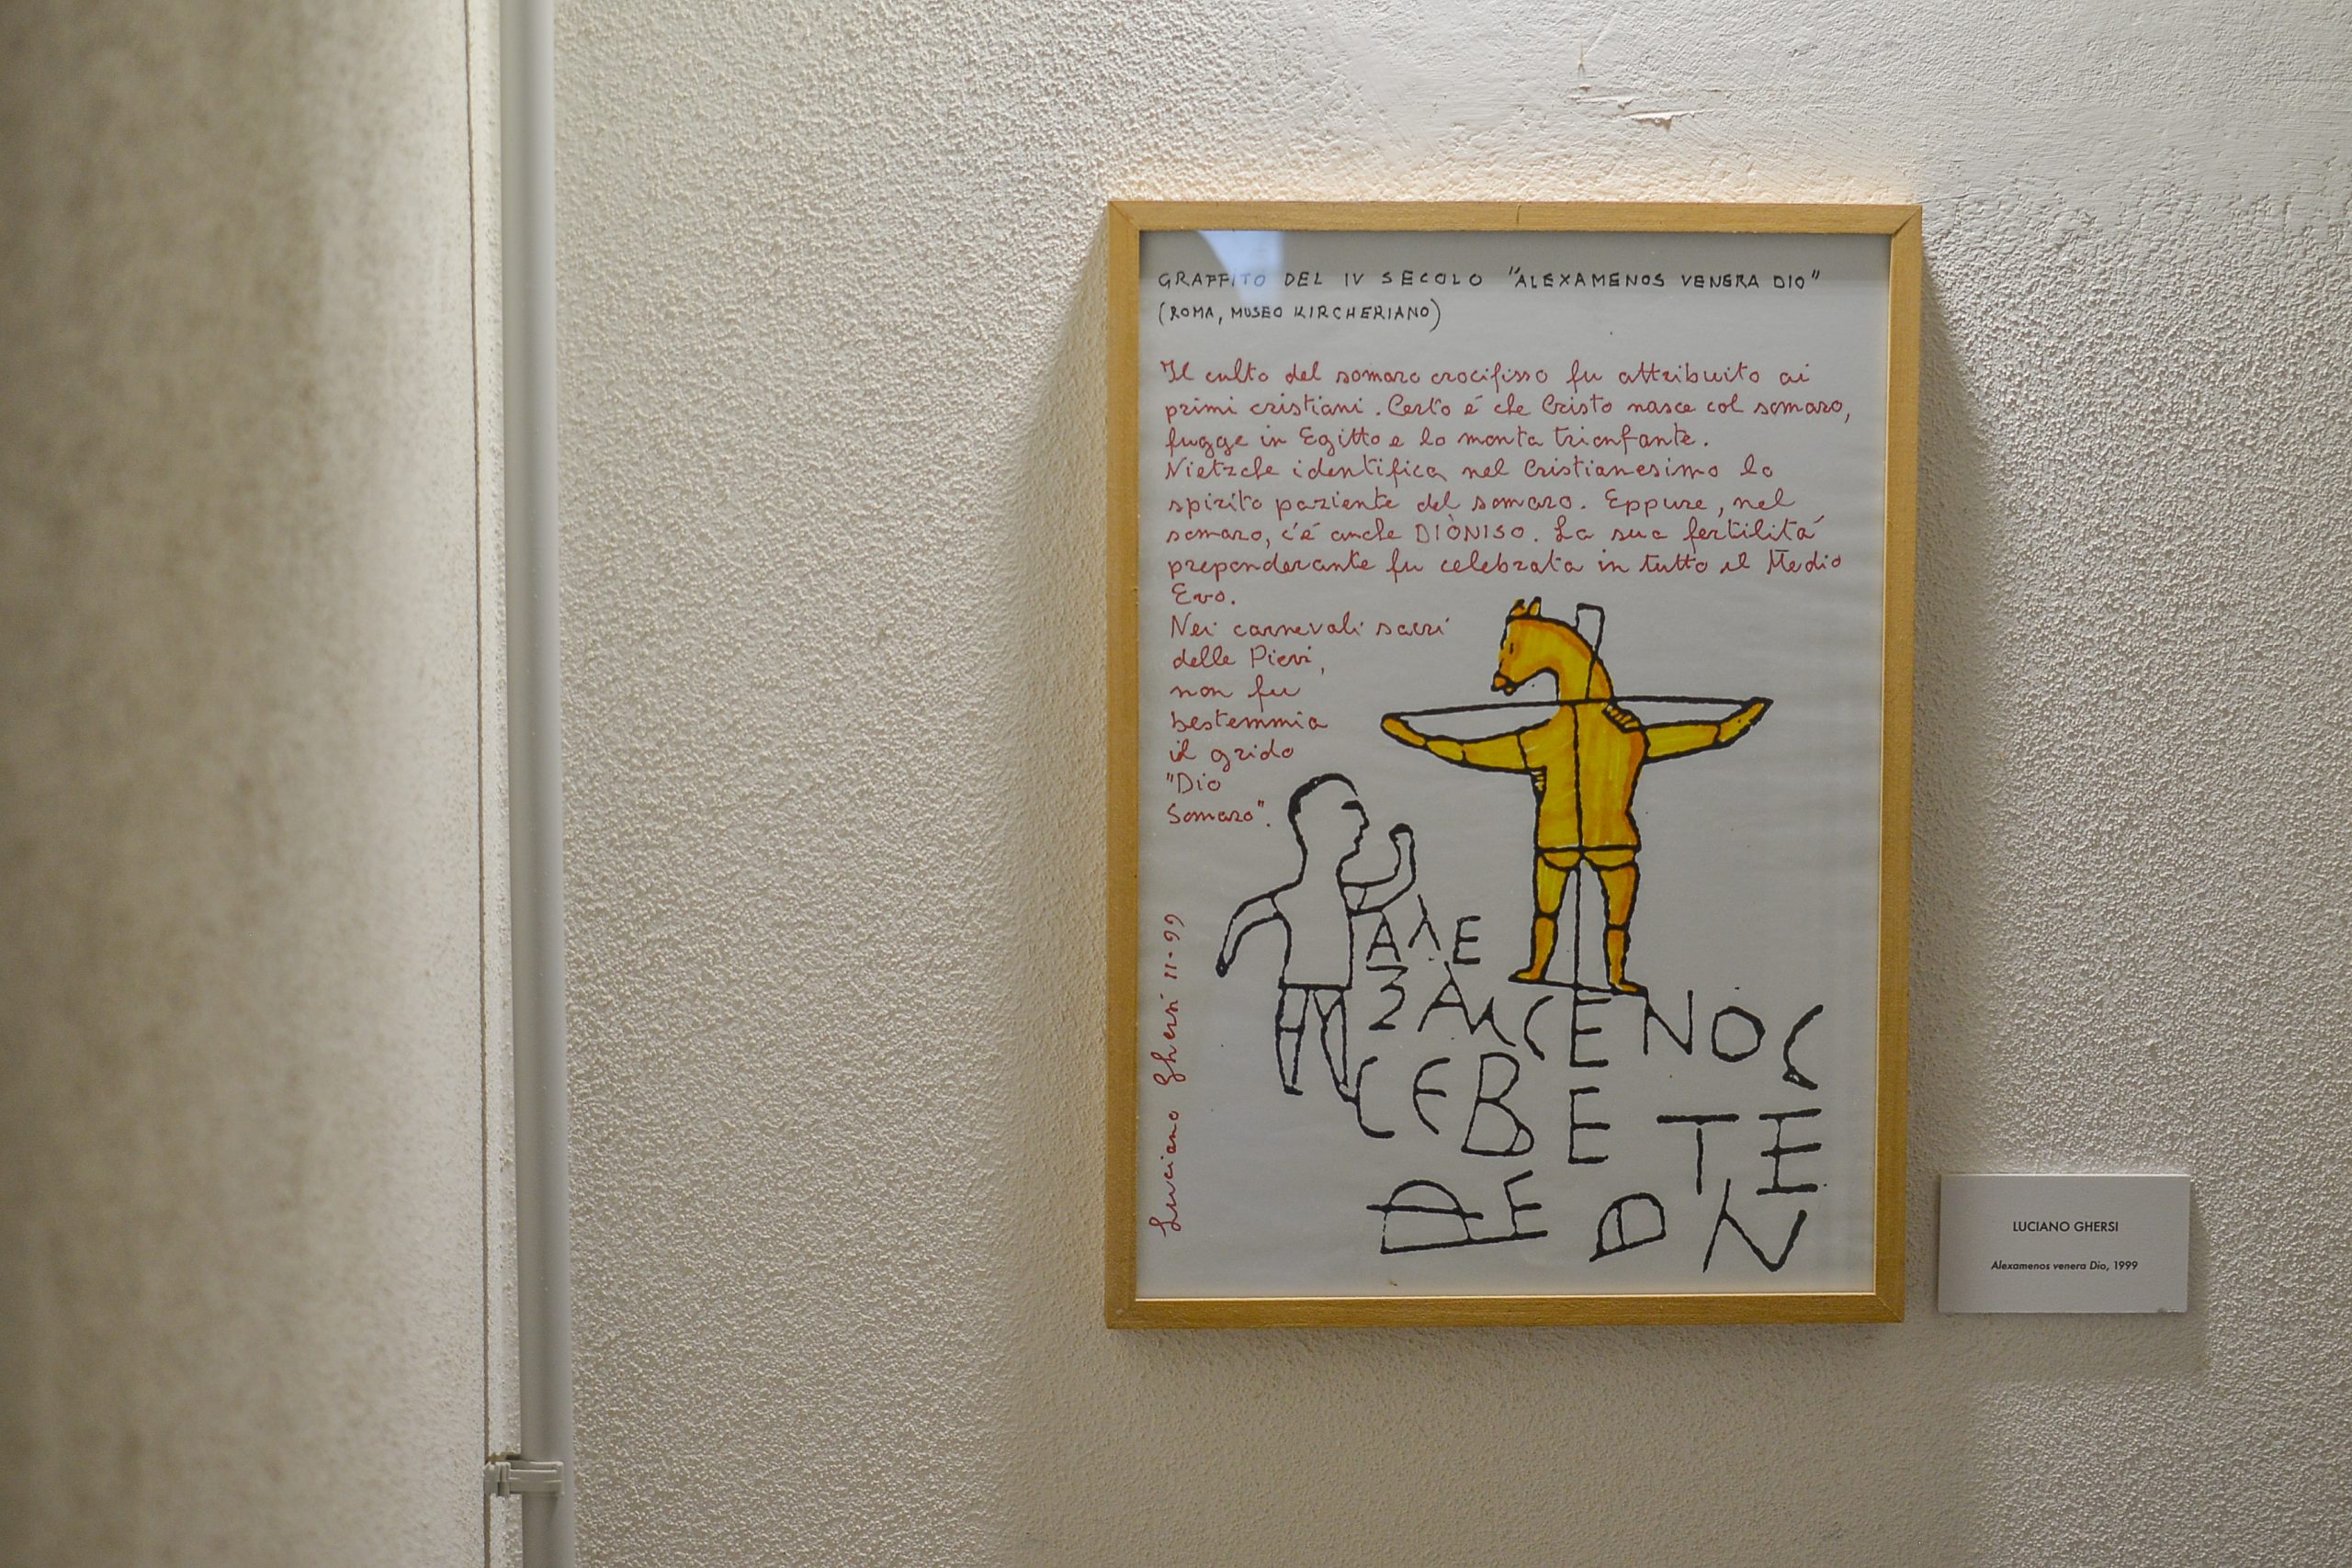 GRAFFITO DEL IV SECOLO "ALEXAMENOS VENERA DIO"
(ROMA, MUSEO KIRCHERIANO)
Il culto del somaro crocifisso fu attribuito ai
primi cristiani. Certo é che Cristo nasce col somaro,
fugge in Egitto e lo monta trionfante.
Nietzche identifica nel Cristianesimo lo
spirito paziente del somaro. Eppure, nel
somaro, c'é anche DIÒNISO. La sua fertilitá
preponderante fu celebrata in tutto il Medio
Evo.
Nei carnevali sacri
delle Pievi,
non fu
bestemmia
il grido
"Dio
Somaro".
Luciano Ghersi 11-99
ΑλΕ
ΞΑΜΕΝΟC
CEBETE
ΘΕΟΝ
LUCIANO GHERSI
Alexamenos venera Dio, 1999